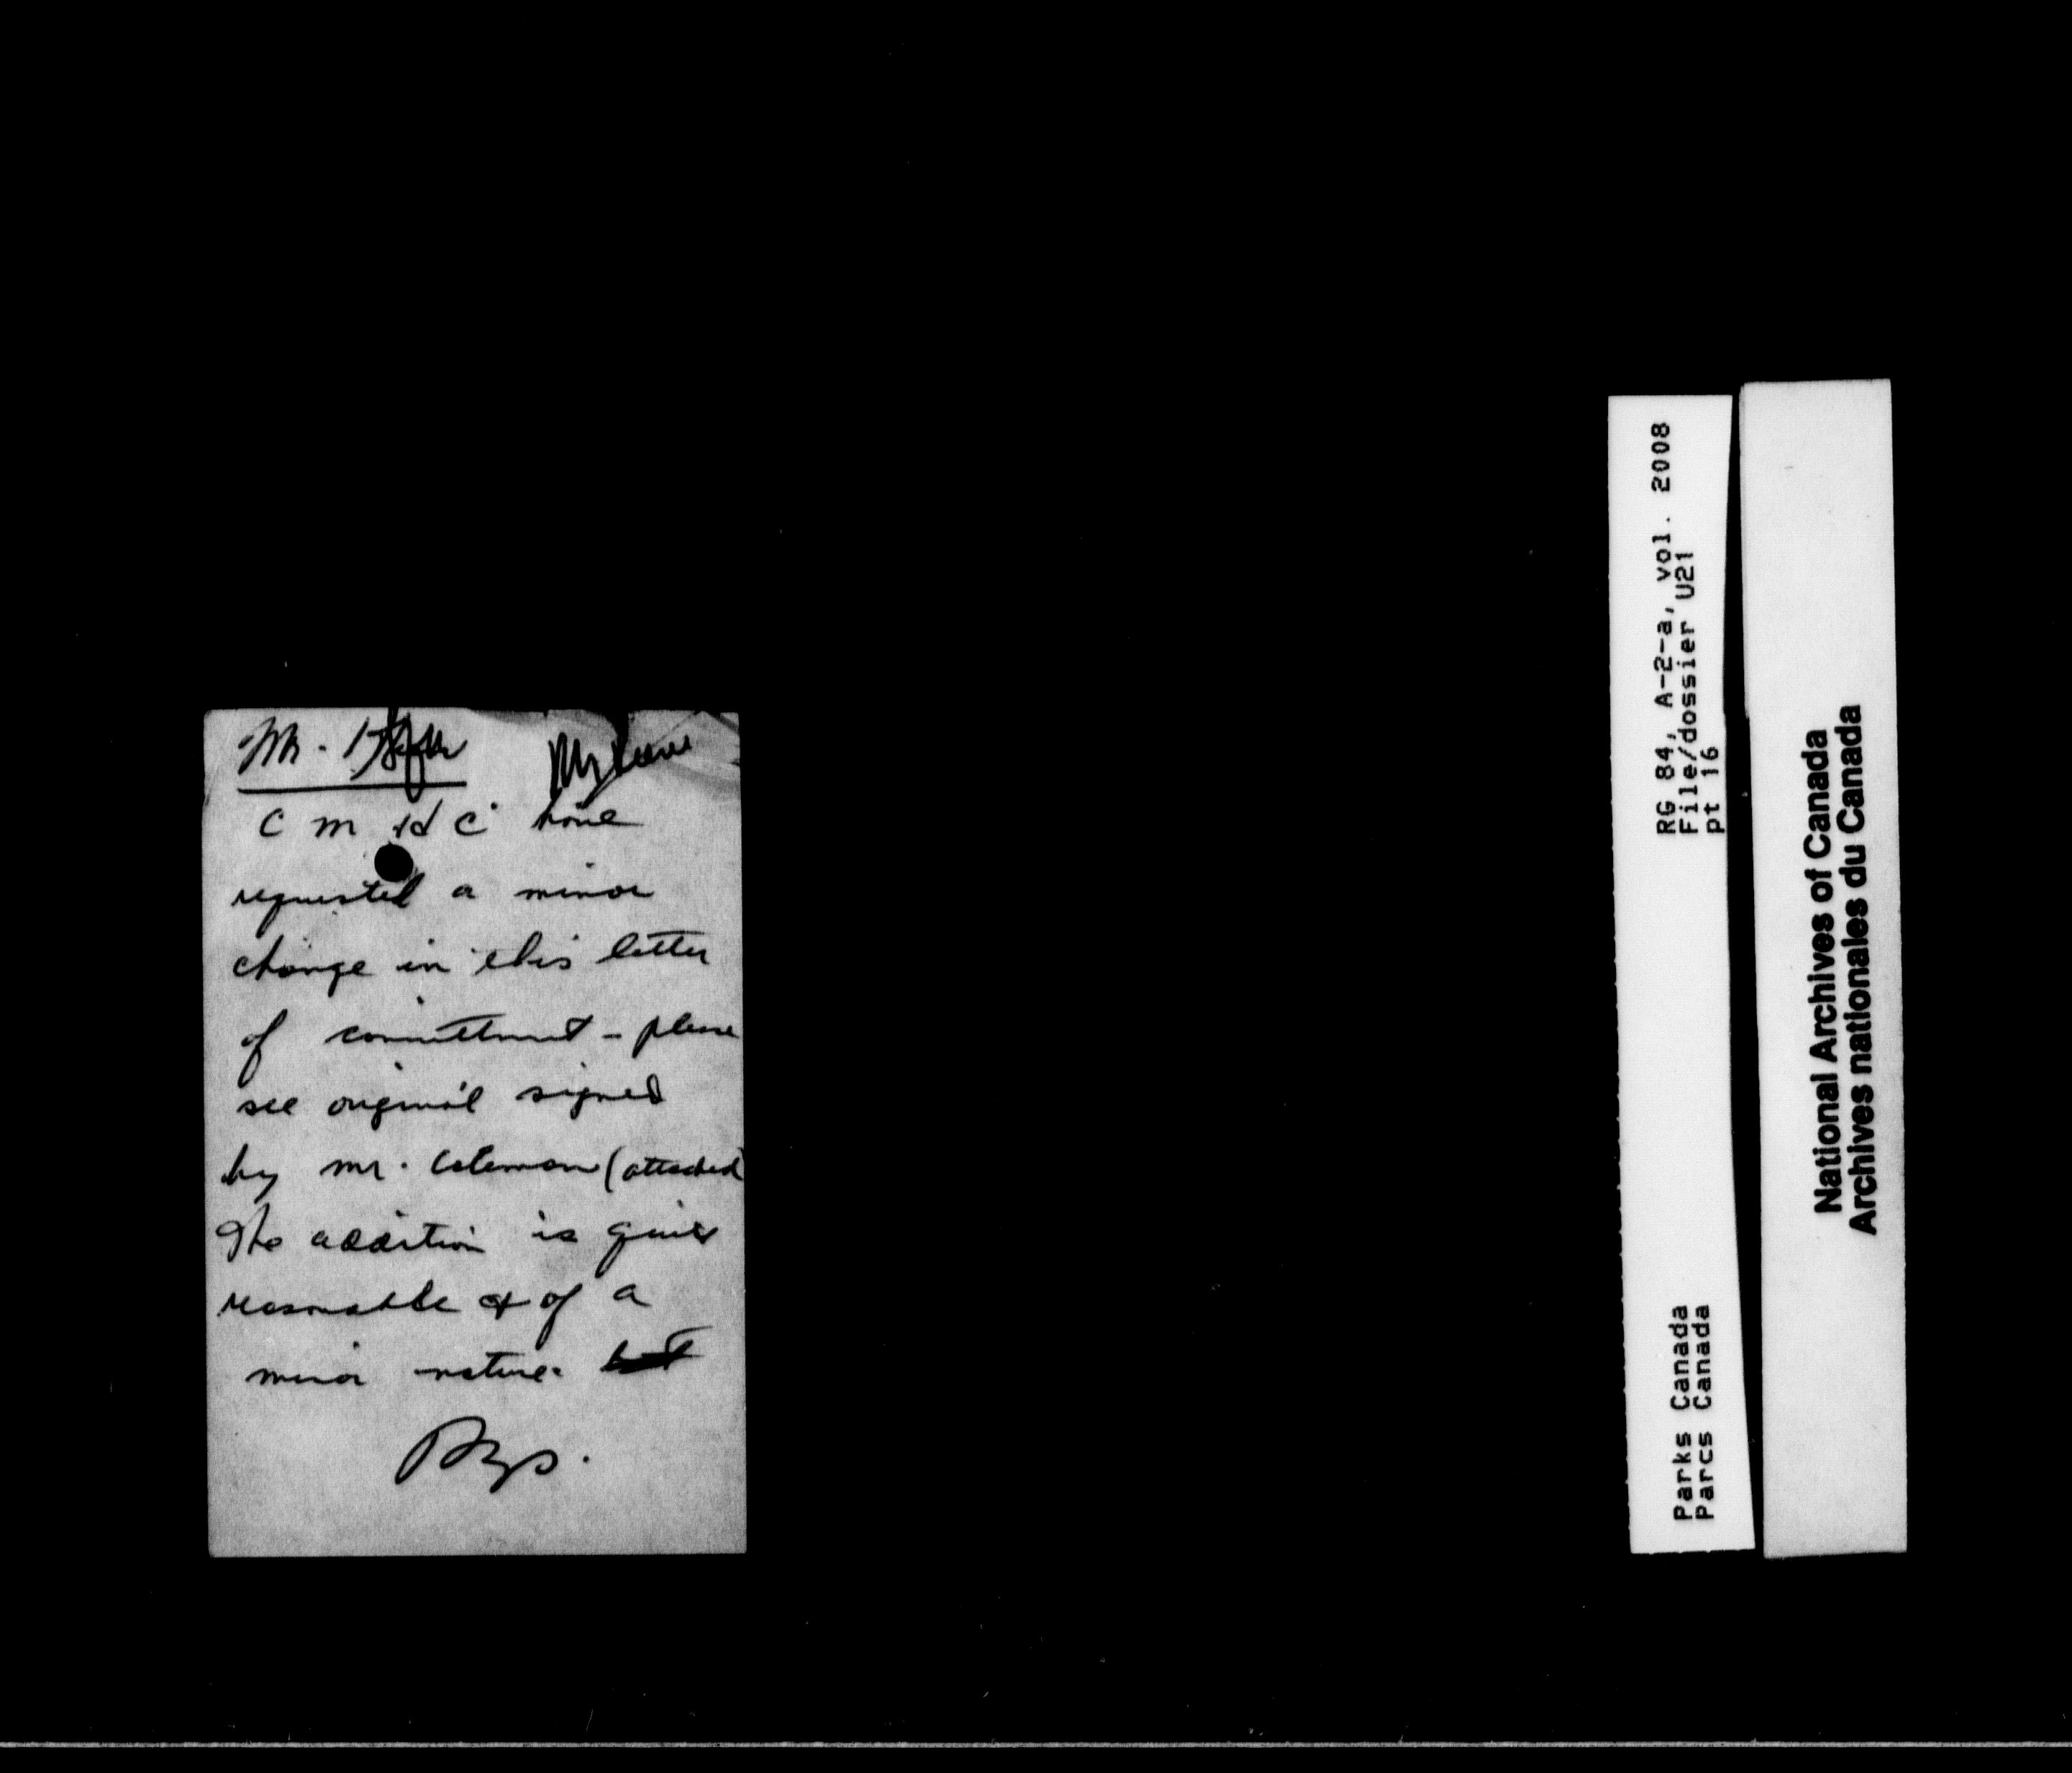 Mr.
C M H C have
requested a minor
change in this letter
of committment - please
see original signed
by Mr. Coleman (attached)
The addition is quite
reasonable & of a
minor nature. but
RG 84, A-2-a, vol. 2008
File/dossier U21
pt 16
Parks Canada
Parcs Canada
National Archives of Canada
Archives nationales du Canada